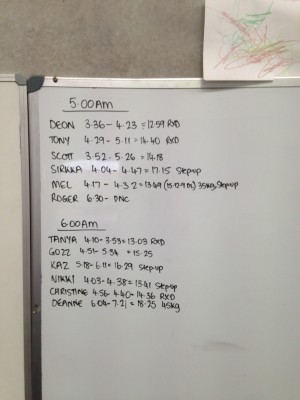 5:00am
DEON 3.36 - 4.23 = 12.59 RXD
TONY 4.29 - 5.11 = 14.40 RXD
SCOTT 3.52 - 5.26 = 14.18
SIRKKA 4.04 - 4.47 = 17.15 Step up
MEL 4.17 - 4.32 = 13.49 35kg, Step up
ROGER 6.30 - DNC
6:00am
TANYA 4.10 - 3.53 = 13.03 RXD
GOZZ 4.51 - 5.34 = 15.25
KAZ 5.18 - 6.11 = 16.29 Step up
NIKKI 4.03 - 4.38 = 13.41 Step up
CHRISTINE 4.56 - 4.40 = 14.36 RXD
DEANNE 6.04 - 7.21 = 18.25 45kg